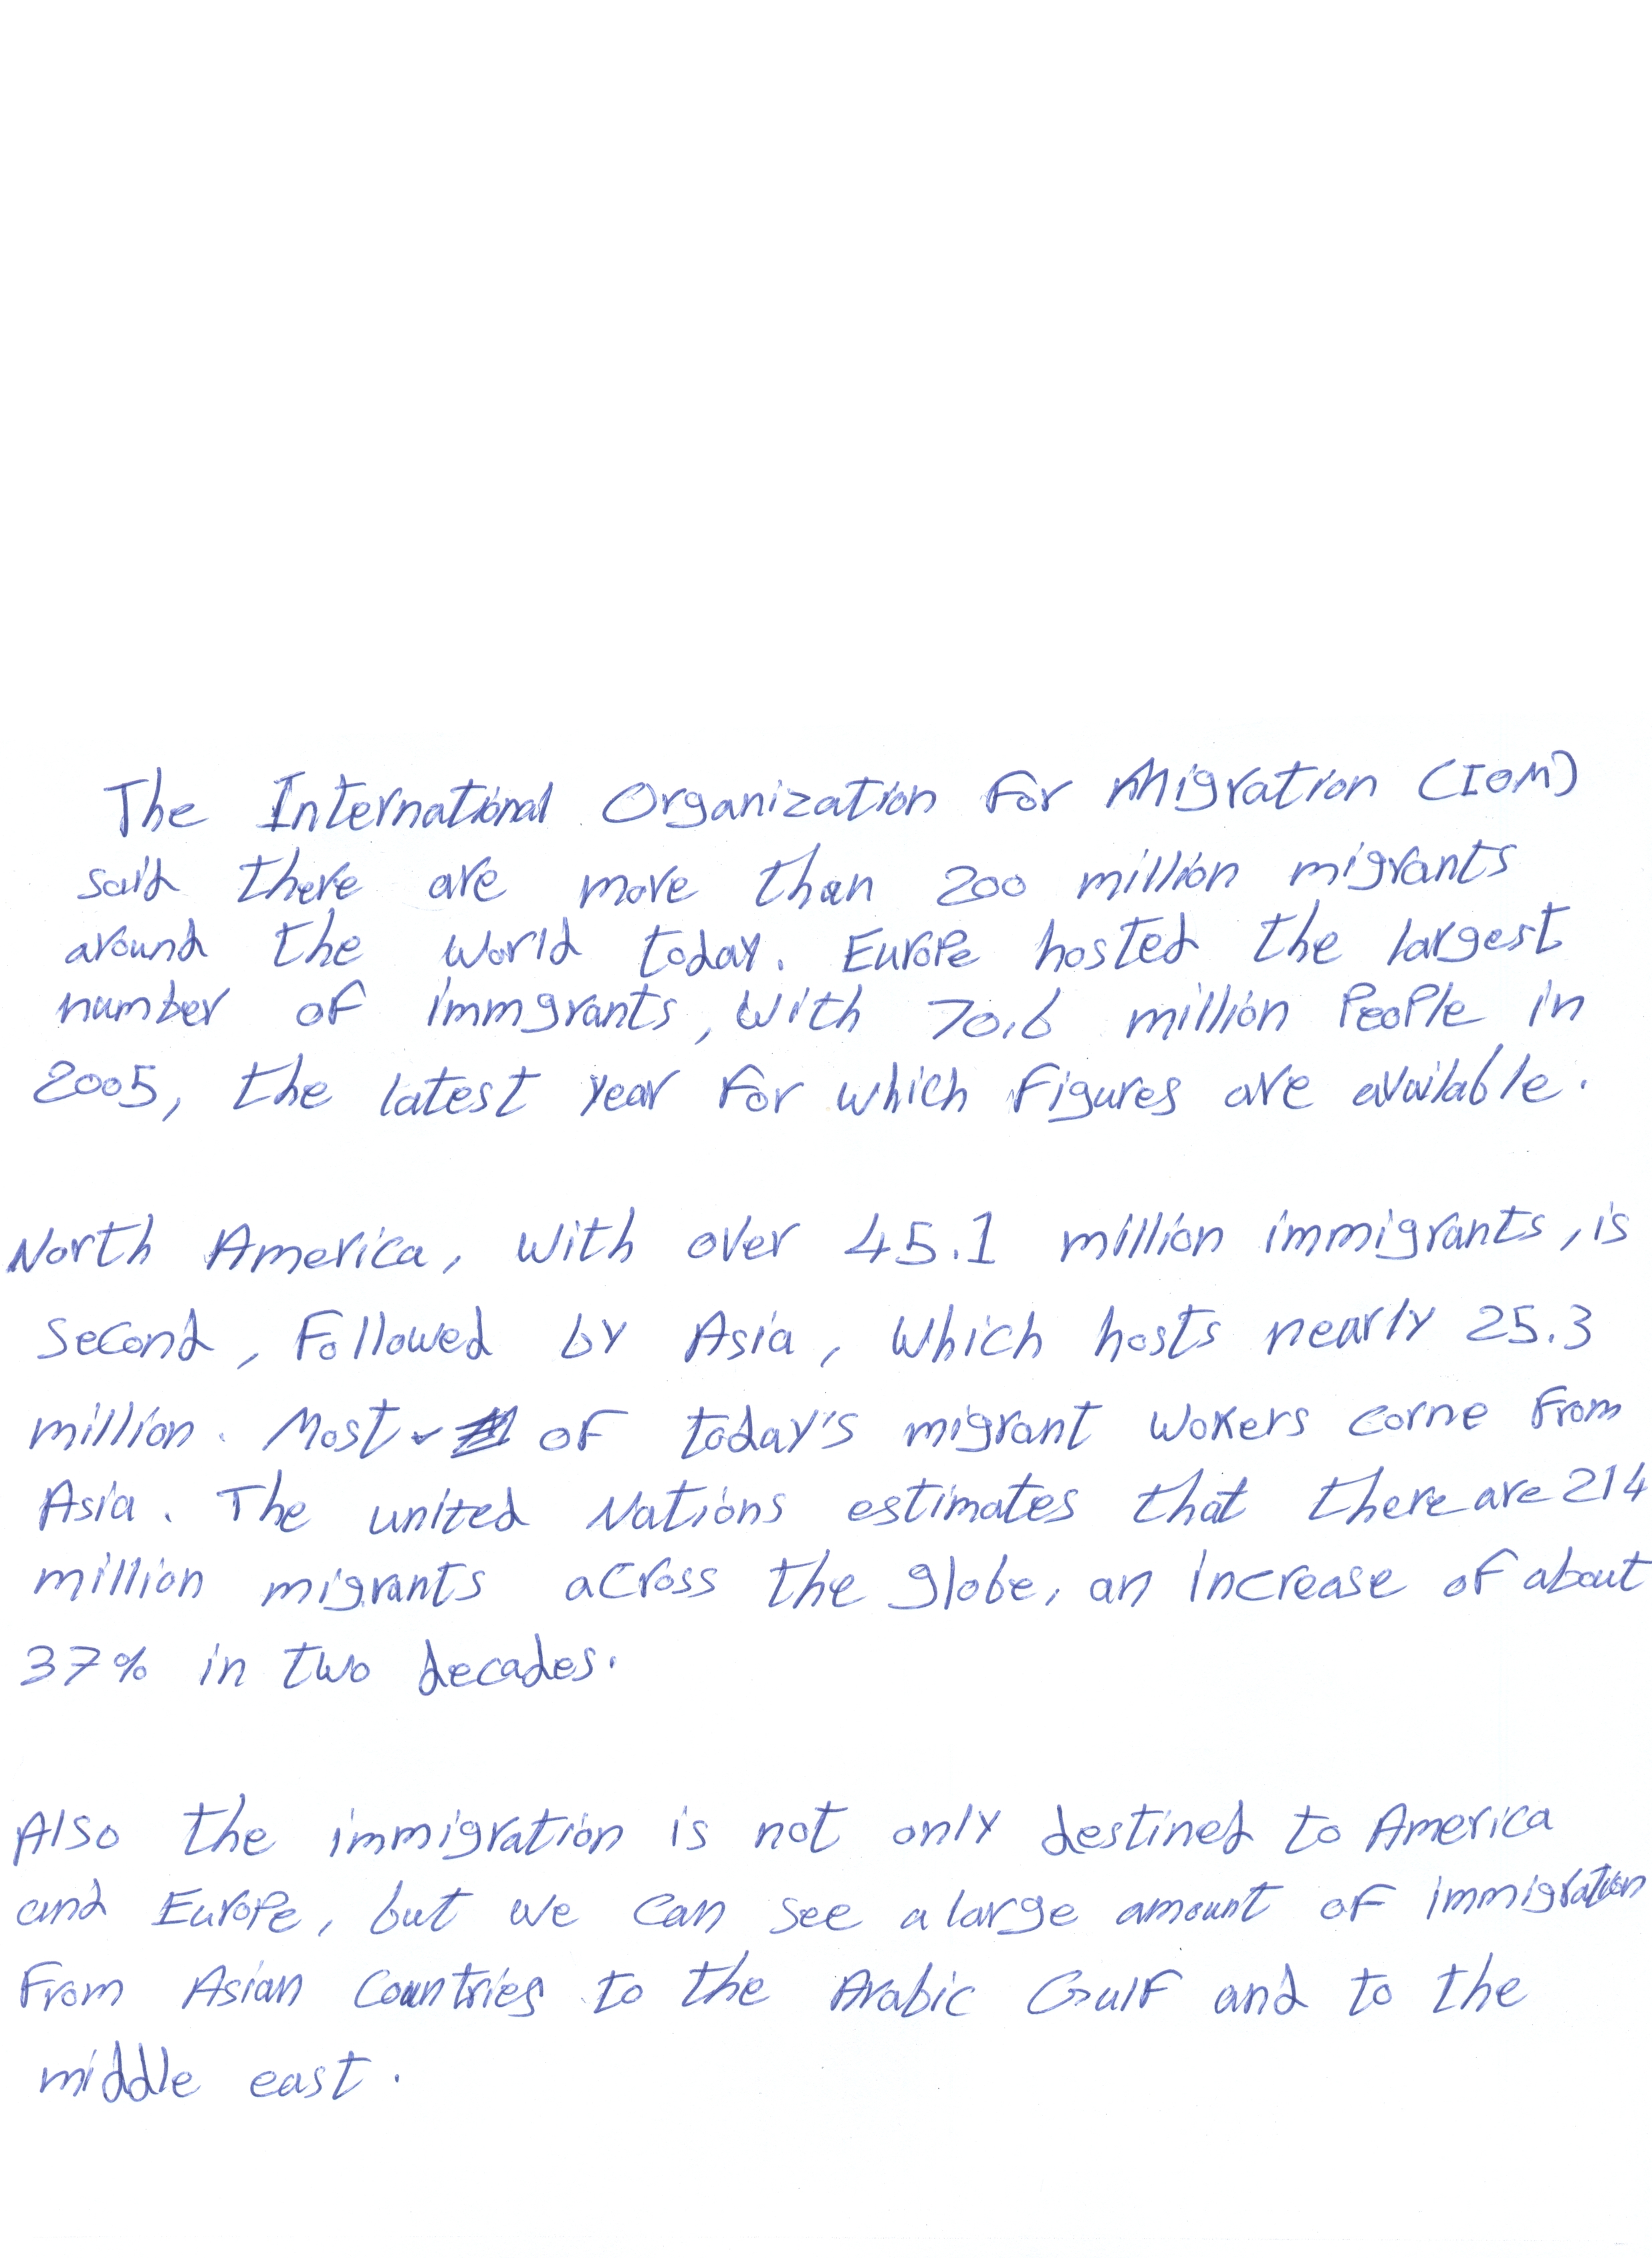 The International Organization For Migration (IOM)
said there are more than 200 million migrants
around the world today. Europe hosted the largest
number of immgrants, with 70.6 million People in
2005, the latest year For which Figures are available.
North America, with over 45.1 million immigrants, is
Second, Followed by Asia, which hosts nearly 25.3
million. Most of today's migrant wokers corne From
Asia. The united Nations estimates that there are 214
million migrants across the globe, an increase of about
37% in two decades.
Also the immigration is not only destined to America
and Europe, but we can see a large amount of immigration
From Asian Countries to the Arabic Gulf and to the
middle east.